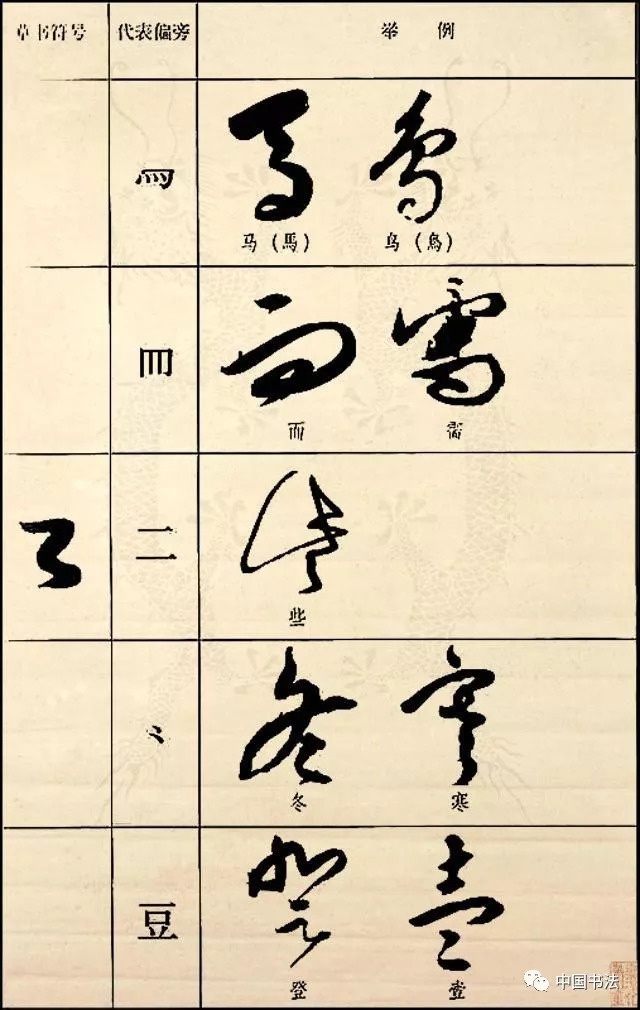 草书符号 代表偏旁 举例
马(馬) 鸟(鳥)
而 需
二
些
冬 寒
豆
登 壹
中国书法